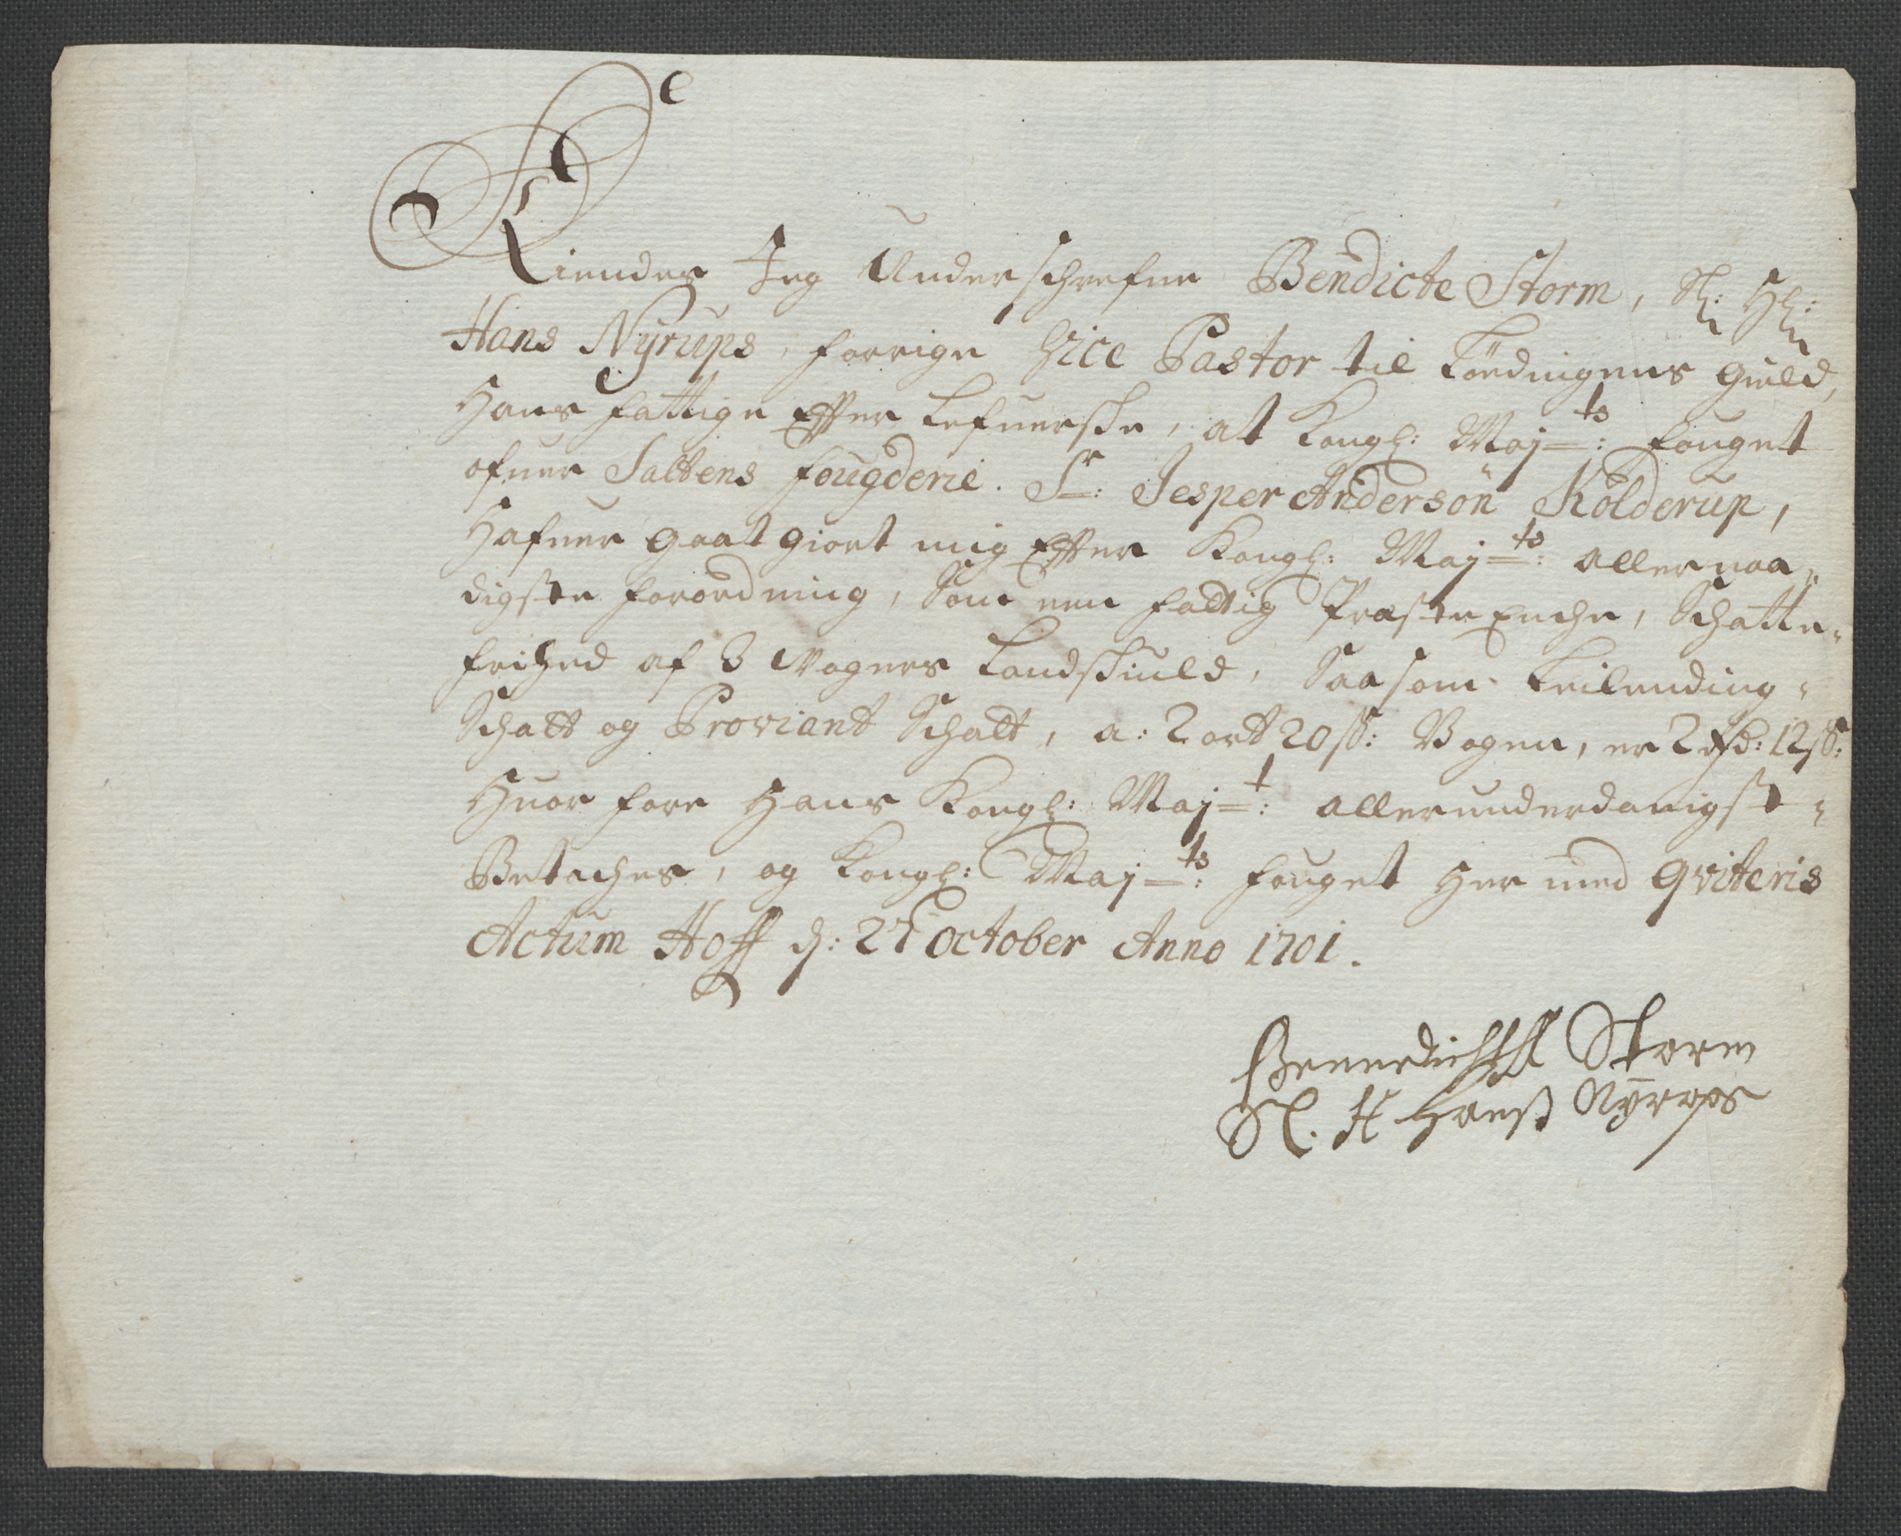 Kiender Jeg Underschrefne Bendicte Storm, Sl: Hr:
Hans Nyrups, forrige Vice Pastor til Lødingens gield,
Hans fattige Effter Lefuerske, at Kongl: Maj=ts: fouget
ofuer Saltens fougderie. Sr: Jesper Andersøn Kolderup,
Hafuer gaat giort mig Effter Kongl: Maj=ts: allernaa„
digste forordning, Som een fattig Præste Enche, Schatte„
frihed af 3 Wogers Landskiuld, Saasom Leilending„
Schatt og Proviant Schatt, a: 2 ort 20 ß: Wogen, er 2 rd: 12 ß:
Huor fore Hans Kongl: Maj=t: allerunderdanigst„
Betaches, og Kongl: Maj=ts: fouget Her med qviteris
Actum Hoff d: 27 October Anno 1701.
Storm
Sl. H Hanß Nyrops